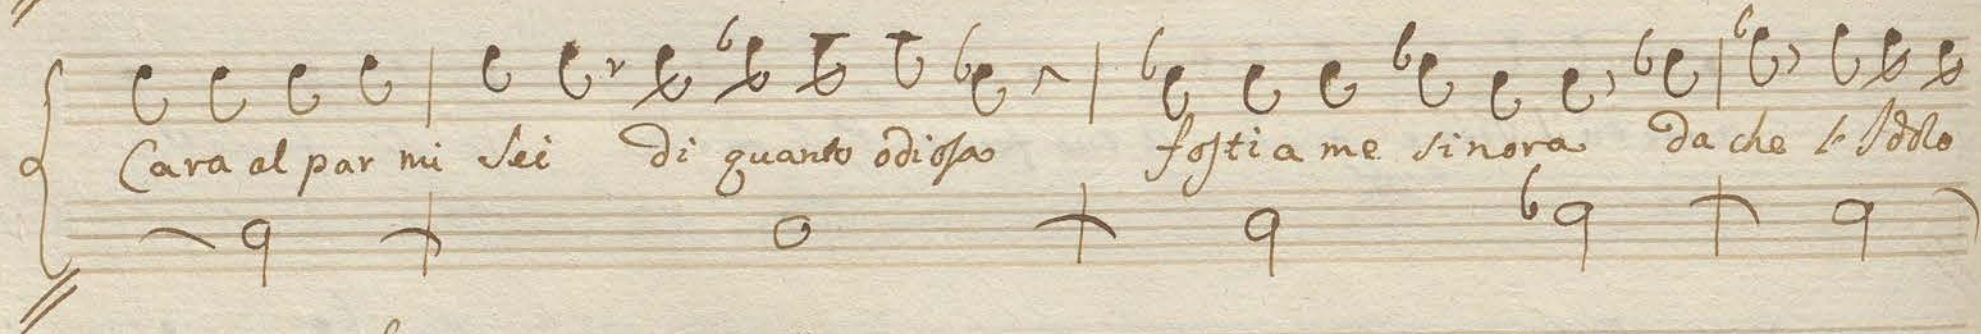 Cara al par mi sei di quanto odiosa fosti a me sinora da che l'Idolo